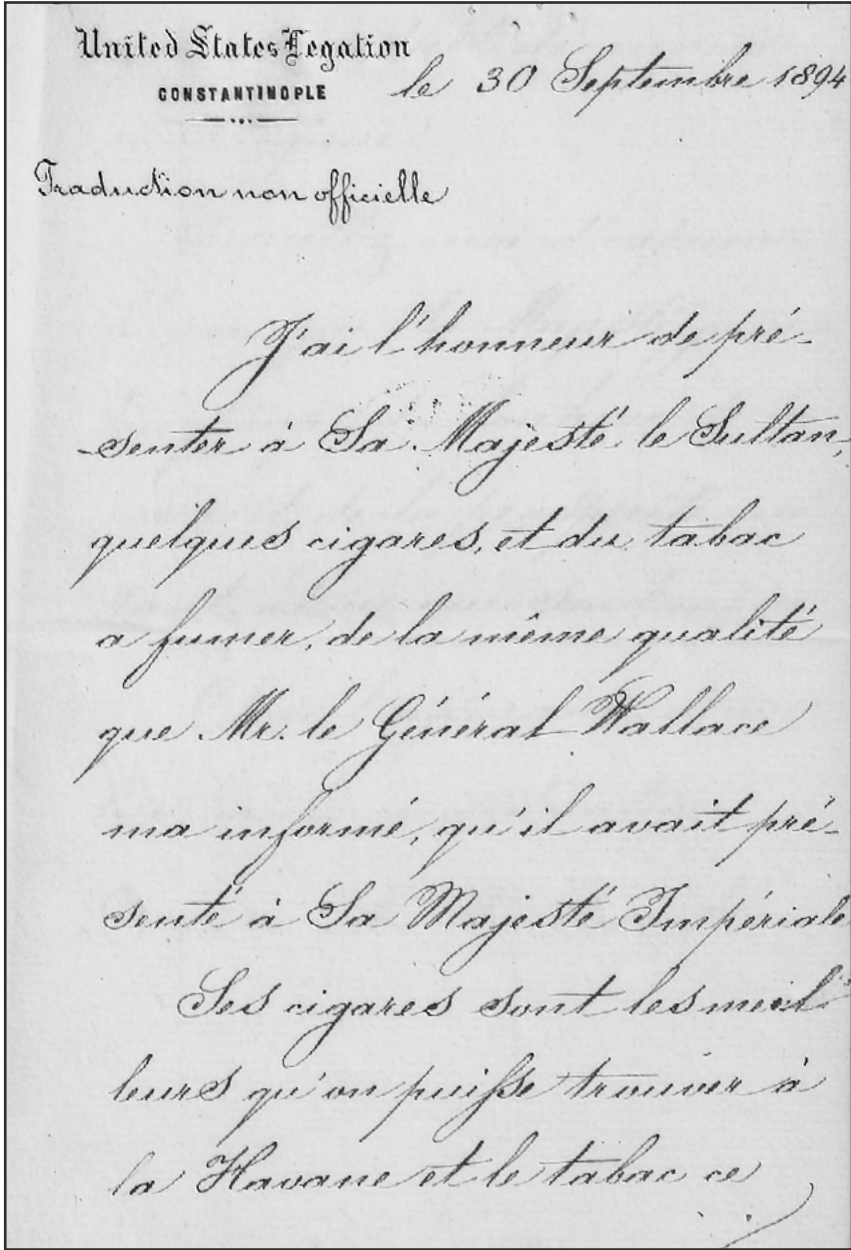 United States Legation
CONSTANTINOPLE
le 30 Septembre 1894
Traduction non officielle
J'ai l'honneur de pré-
-senter à Sa Majesté le Sultan,
quelques cigares, et du tabac
a fumer, de la même qualité
que Mr. le Général Wallace
ma informé, qu'il avait pré-
senté à Sa Majesté Impériale
Ses cigares sont les meil-
leurs qu'on puisse trouver à
la Havane et le tabac ce